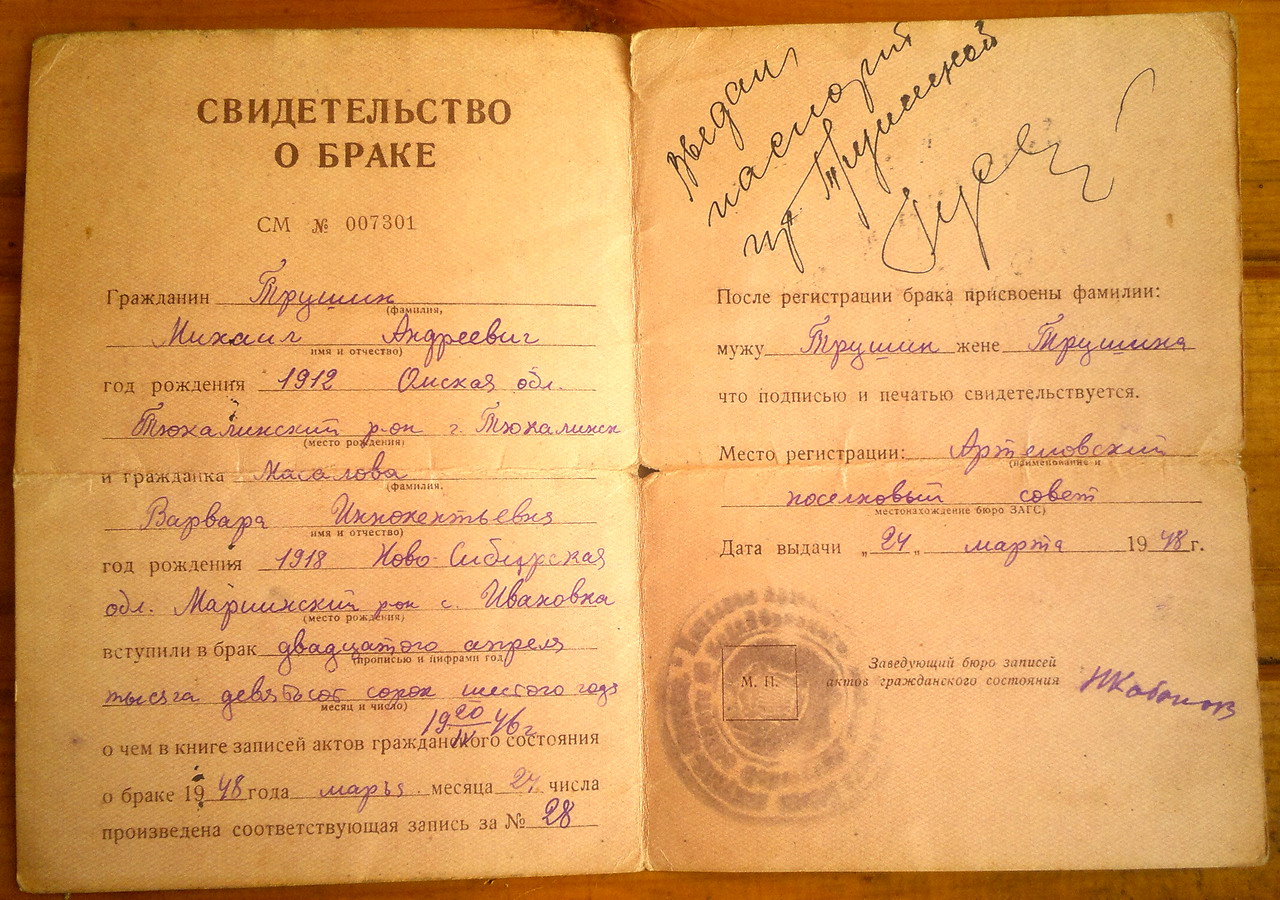 СВИДЕТЕЛЬСТВО
О БРАКЕ
СМ № 007301
Гражданин Трушин
(фамилия,
Михаил Андреевич
имя и отчество)
год рождения 1912 Омская обл.
Тюкалинский р-он г. Тюкалинск
(место рождения)
и гражданка Масалова
(фамилия.
Варвара Иннокентьевна
имя и отчество)
год рождения 1918 Ново-Сибирская
обл. Мариинский р-он с. Ивановка
(место рождения)
вступили в брак двадцатого апреля
(прописью и цифрами год,
тысяча девятьсот сорок шестого года
месяц и число)
19 20/IV 46 г.
о чем в книге записей актов гражданского состояния
о браке 19 48 года марта месяца 24 числа
произведена соответствующая запись за № 28
выдан
паспорт
гр. Трушиной
После регистрации брака присвоены фамилии:
мужу Трушин жене Трушина
что подписью и печатью свидетельствуется.
Место регистрации: Артемовский
(наименование и
поселковый совет
местонахождение бюро ЗАГС)
Дата выдачи „24„ марта 19 48 г.
Заведующий бюро записей
М. П. актов гражданского состояния